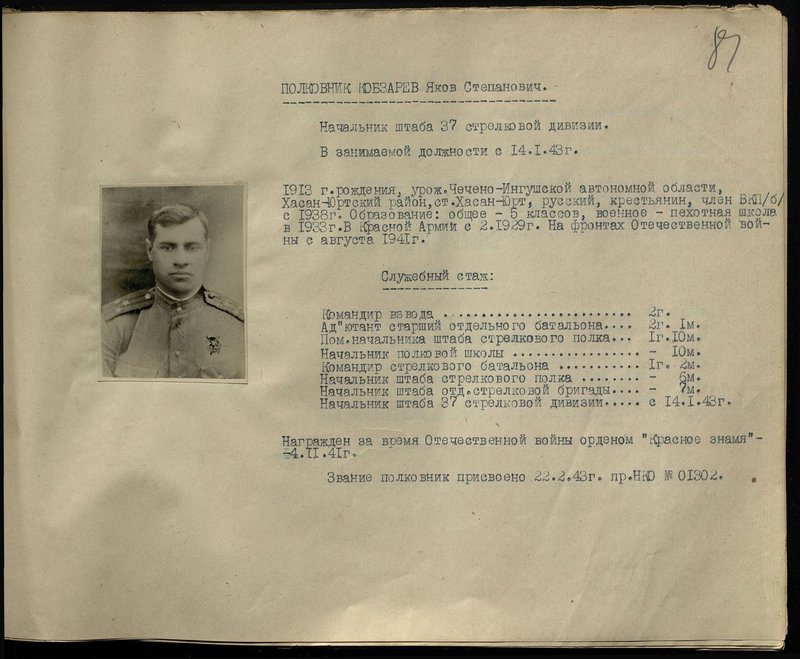 87
ПОЛКОВНИК КОБЗАРЕВ Яков Степанович.
Начальник штаба 37 стрелковой дивизии.
В занимаемой должности с 14.I.43г.
1913 г.рождения, урож.Чечено-Ингушской автономной области,
Хасан-Юртский район,ст.Хасан-Юрт, русский, крестьянин, член ВКП/б/
с 1938г. Образование: общее - 5 классов, военное - пехотная школа
в 1933г.В Красной Армии с 2.1929г. На фронтах Отечественной вой-
ны с августа 1941г.
Служебный стаж:
Командир взвода ......................... 2г.
Ад"ютант старший отдельного батальона.... 2г. 1м.
Пом.начальника штаба стрелкового полка... 1г.10м.
Начальник полковой школы ................. - 10м.
Командир стрелкового батальона ........... 1г. 2м.
Начальник штаба стрелкового полка ........ -
Начальник штаба отд.стрелковой бригады.... - 7м.
Начальник штаба 37 стрелковой дивизии..... с 14.I.43г.
Награжден за время Отечественной войны орденом "Красное знамя"-
-4.II.41г.
Звание полковник присвоено 22.2.43г. пр.НКО № 01302.